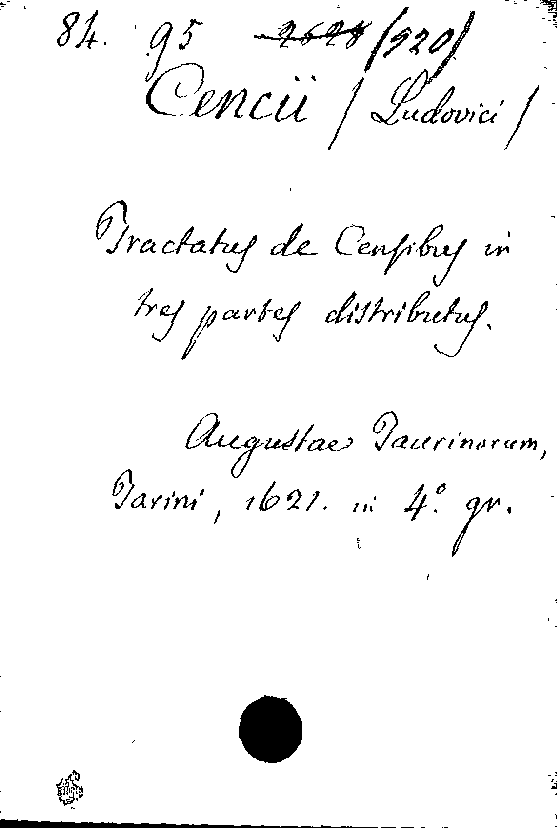 84. 95 2628 (920)
Cencii / Ludovici /
Tractatus de Censibus in
tres partes distributus.
Augustae Taurinorum,
Tarini, 1621. in 4.° gr.